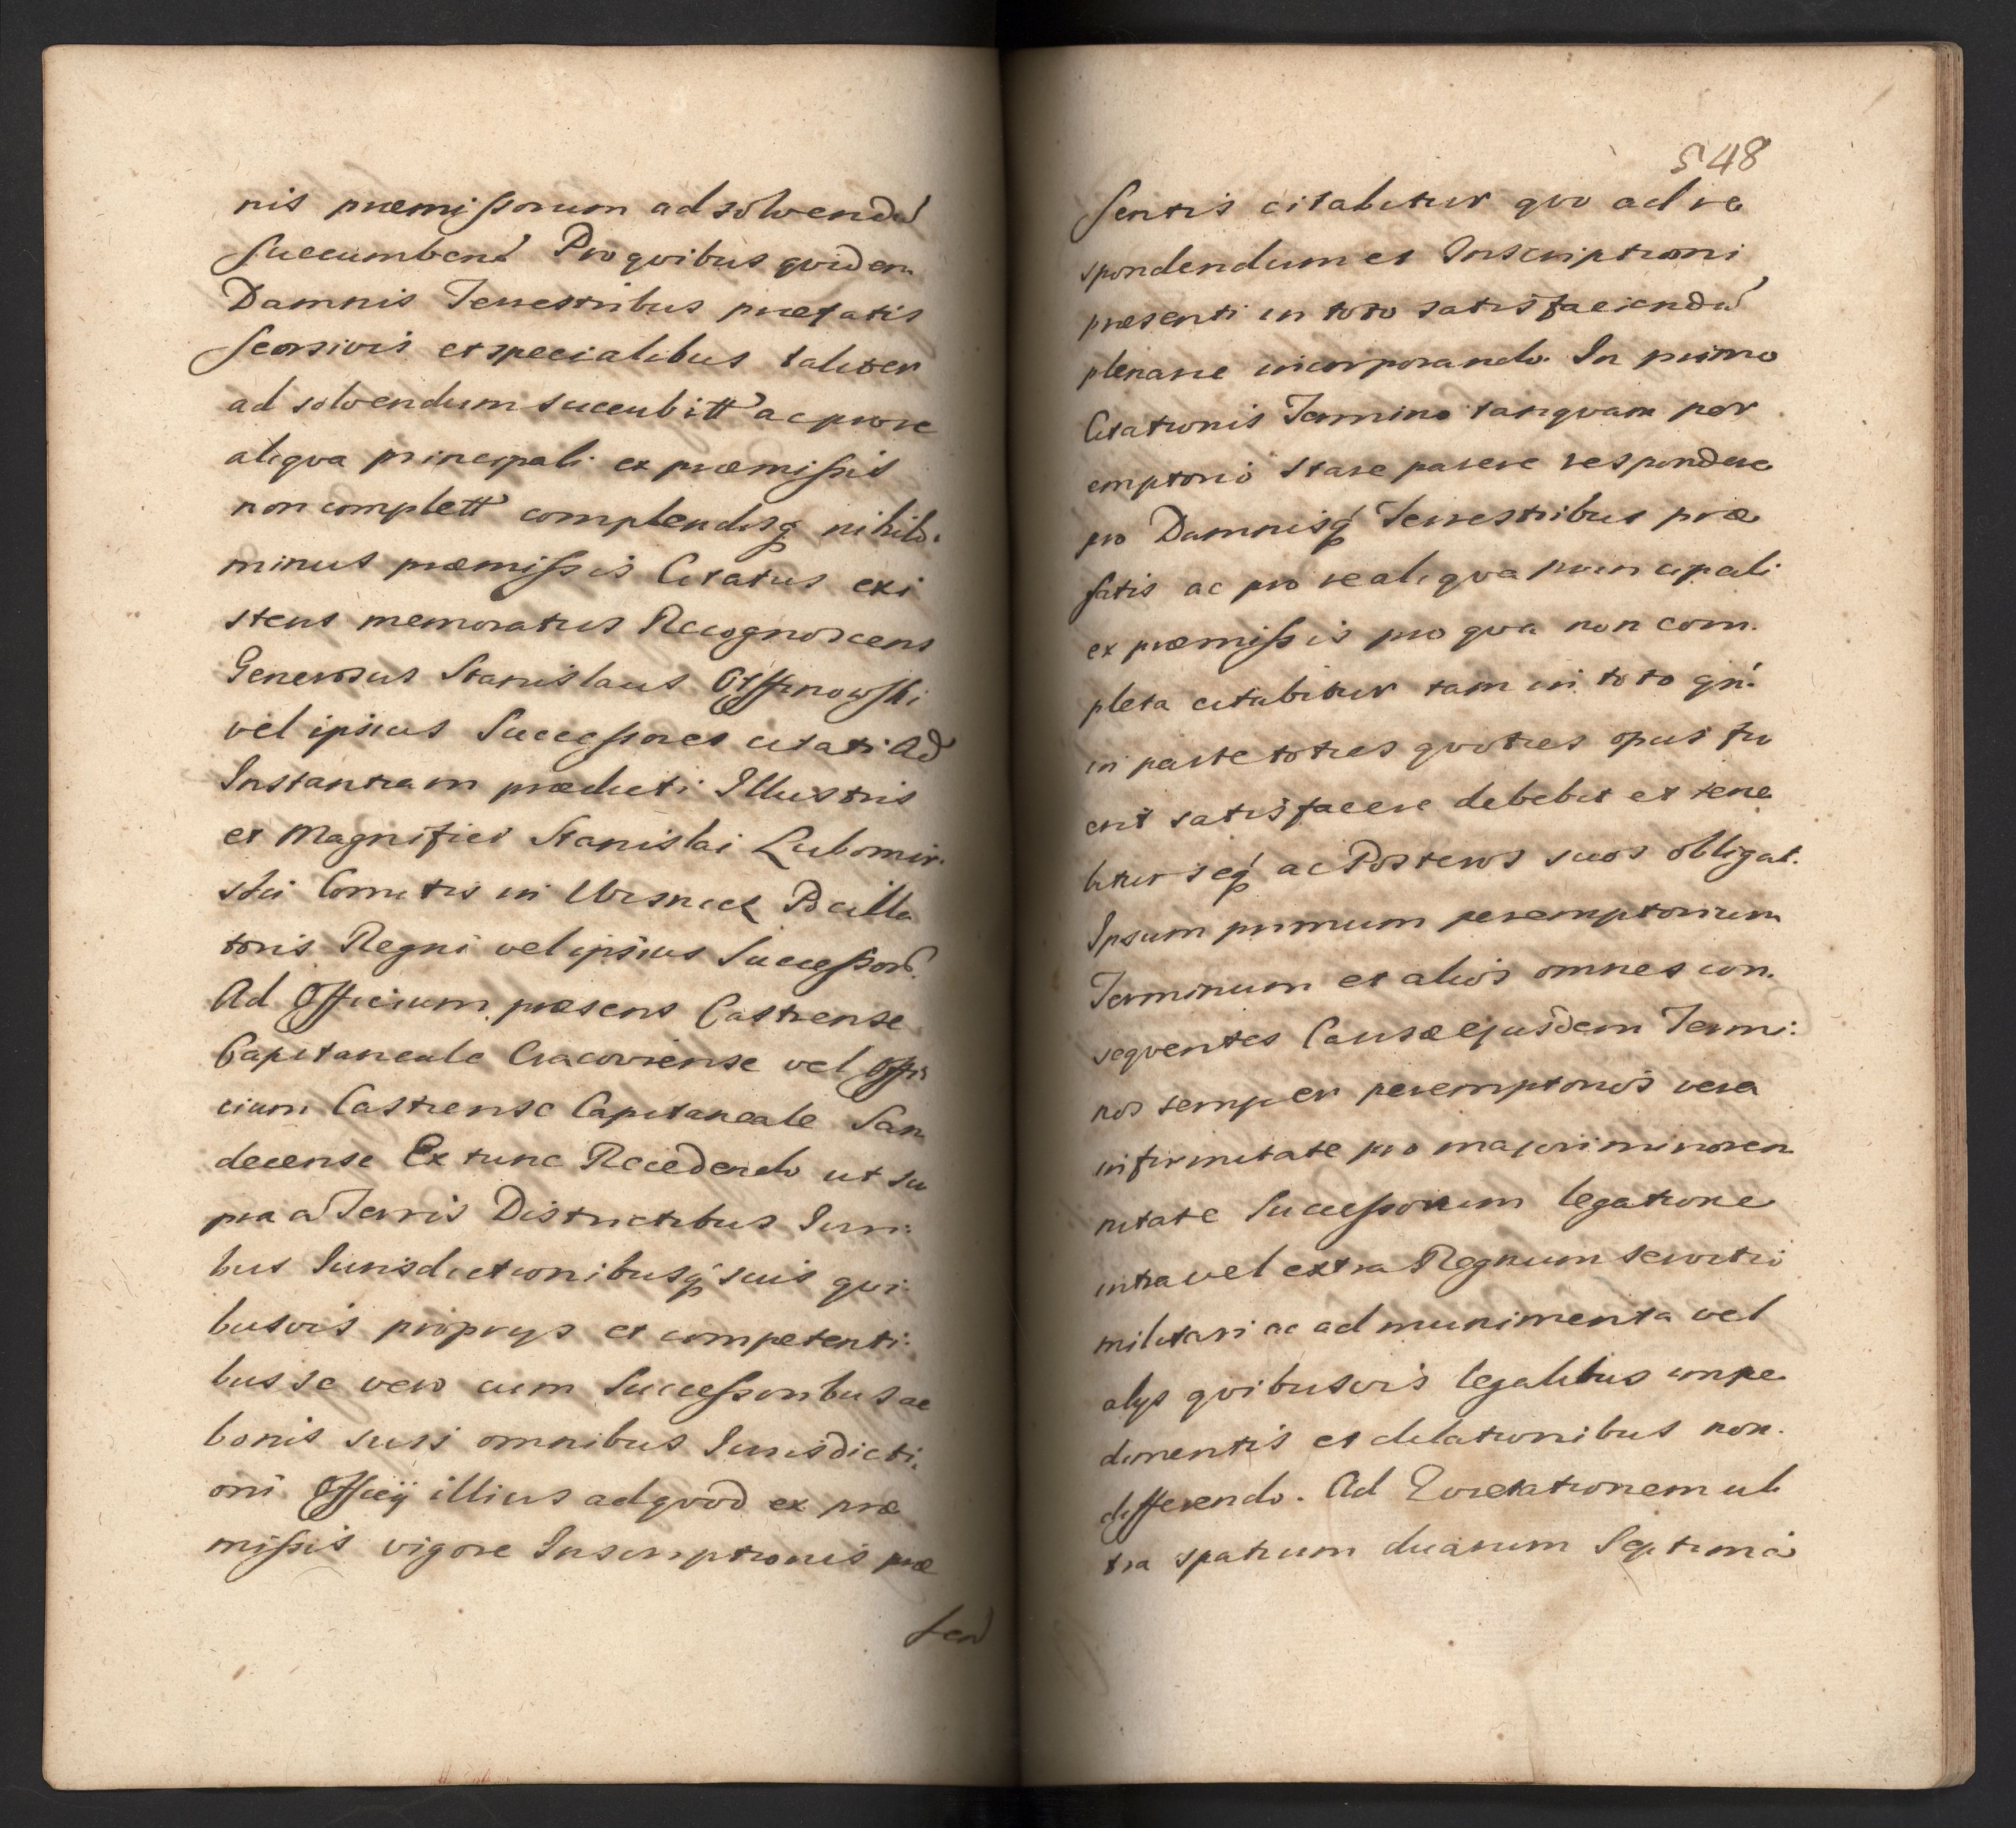 nis præmissorum ad solvendũ
succumbenđ Pro qvibus qvidem
Damnis Terrestribus præfatis
seorsivis et specialibus taliter
ad solvendum succubitt ac pro re
aliqva principali ex præmissis
non complett complendisq nihilo.
minus præmissis Citatus exi
stens memoratus Recognoscens
Generosus Stanislaus
vel ipsius Successores citati ad
Instantiam prædicti Illustris
et Magnifici Stanislai Lubomir.
ski Comitis in Wisnicz Pocilla
toris Regni vel ipsius Successor.
Ad Officium præsens Castrense
Capitaneale Cracoviense vel Offi
cium Castrense Capitaneale San
decense Ex tunc Recedendo ut su
pra a Terris Districtibus Iuri:
bus Iurisdictionibusq suis qvi.
busvis proprys et competenti:
bus se vero cum Successoribus ac
bonis suis omnibus Iurisdicti.
oni Officij illius ad qvod ex præ
missis vigore Inscriptionis præ
sen
548
sentis citabitur qvo ad re
spondendum et Inscriptioni
præsenti in toto satisfaciendũ
plenarie incorporando. In primo
Citationis Termino tanqvam per
emptorio stare parere respondere
pro Damnisq Terrestribus præ
fatis ac pro re aliqva principali
ex præmissis pro qva non com.
pleta citabitur tam in toto qñ
in parte toties qvoties opus fu
erit satisfacere debebit et tene
bitur seq ac Posteros suos obligat.
Ipsum primum peremptorium
Terminum et alios omnes con.
seqventes Causæ ejusdem Termi:
nos semper peremptorios vera
infirmitate pro majori minoren
nitate Successorum legatione
intra vel extra Regnum servitio
militari ac ad munimenta vel
alys qvibusvis legalibus impe
dimentis et dilationibus non.
differendo. Ad Evictationem ul
tra spatium duarum Septimã